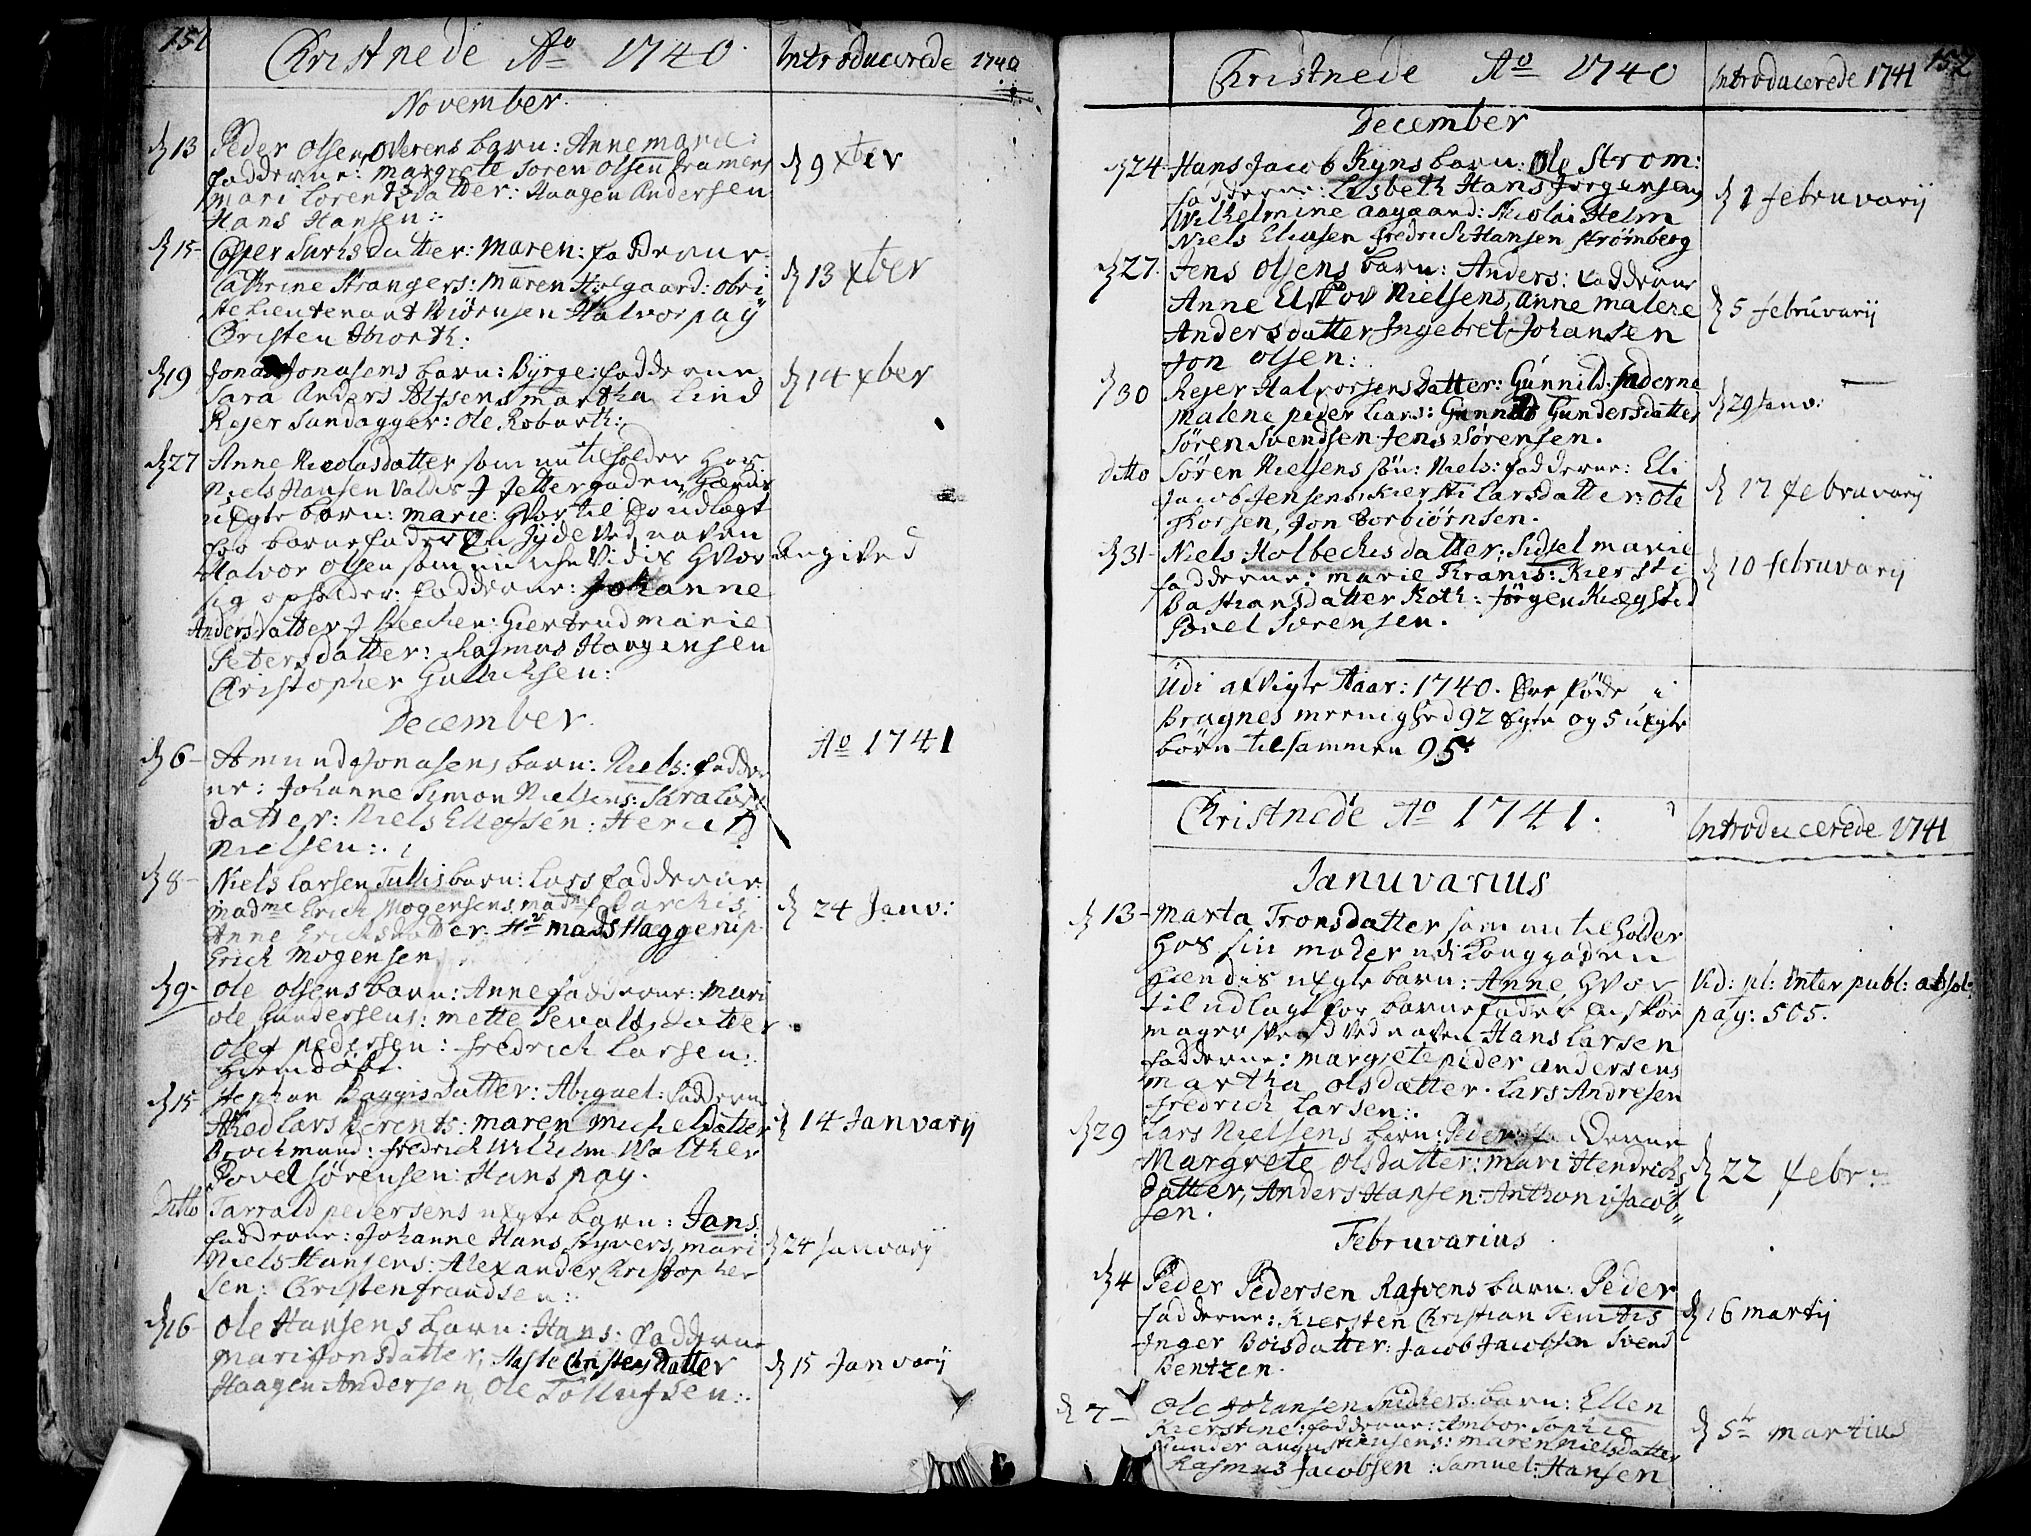 151
Christnede Ao 1740.
Introducerede 1740
November.
d 13 Peder Olsen Overens barn: Anne marie:
fadderne: margrete Søren Olsen framens
mari Lorentzdatter: Haagen Andersen
Hans Hansen:
d 9 xber
d 15 - Casper Surks datter: Maren: fadderne:
Cathrine Strangers: maren Holgaard: obri
ste Lieutenant Biørnsen Halvor pay
Christen Thorth:
d 13 xber
d 19 Jonas Jonasens barn: Byrge: fadderne
Sara Anders Alfsens martha Lind
Rejer Sundagger: Ole Robarth:
d 14 xber
d 27 Anne Nicolasdatter som nu tilholder hos
Niels Hansen Valdis J Jettergaden, Hændis
uægte barn: marie: hvor til er udlagt
for barnefader En Jyde ved naven
Halvor Olsen som mi iche vidis hvor angived
sig opholder: fadderne: Johanne
Andersdatter J Becken: Giertrud marie
Petersdatter: Rasmus Haagensen
Christopher Gulichsen:
December.
Ao 1741
d 6 - Amund Jonasens barn: Niels: fadder
ne: Johanne Simon Nielsens: Sara Lars
datter: Niels Ellefsen: Herlud
Nielsen:
d 8 - Niels Larsen Tullis barn: Lars fadderne
madme Erich Mogensens, madme Larchis
Anne Erichsdatter Hr mads Haggerup.
Erich Mogensen
d 24 Janv:
d 9 - Ole Olsens barn: Anne fadderne: Mari
Ole Gundersens: mette Sevaldsdatter
Ole Pedersen: fredrich Larsen:
hiemdøbt.
d 15 Stephan Baggis datter: Abiguel: fadderne
Lars Berents: maren micheldatter
Brochmand: fredrich Wilhelm Walther
Povel Sørensen: Hans pay.
d 14 Janvarij
Ditto Tarrald pedersens uægte barn: Jens
fadderne: Johanne Hans Ryvers, mari
Niels Hansens: Alexander Christopher
sen: Christen frandsen:
d 24 Janvarij
d 16 Ole Hansens barn: Hans: fadderne
Mari Jonsdatter, Aaste Christensdatter
Haagen Andersen, Ole Tollufsen:
d 15 Janvarij
152
Christnede Ao 1740
Introducerede 1741
December
d 24 - Hans Jacob Ryns barn: Ole Strøm:
fadderne: Lisbeth Hans Jørgensens
Wilhelmine Aagaard: Nicolai Helm
Niels Eliasen fredrich Hansen Strømberg
d 1 februvarij
d 27. Jens Olsens barn: Anders: fadderne
Anne Elskov Nielsens, anne malene
Andersdatter Ingebret Johansen
Jon Olsen:
d 5 februvarij
d 30 Rejer Halvorsens datter: Gunnild: faderne
malene peder Lars: Gunnild Gundersdatter
Søren Svendsen Jens Sørensen.
d 29 Janv:
ditto Søren Nielsens søn: Niels: fadderne: Eli
Jacob Jensens: Kiersti Larsdatter: Ole
Thorsen, Jon Torbiørnsen.
d 17 februvarij
d 31 - Niels Holbechis datter: Sidsel marie
fadderne: marie Kranis: Kiersti
Bastiansdatter Roth: Jørgen Kiegsted
Povel Sørensen.
d 10 februvarij
Udi afvigte Aaar: 1740. Ere føde i
Bragnes meenighed 92 Egte og 5 uægte
børn tilsammen 95.
Christnede Ao 1741.
Introducerede 1741
Januvarius
d 13 - Marta Tronsdatter som nu tilholder
hos sin moder udi Longgaden
hændis uægte barn: Anne hvor
til udlagt for barnefader En skoe
magersvend ved naven Hans Larsen
fadderne: margrete peder andersens
martha Olsdatter. Lars Andresen
fredrich Larsen:
Vid: pl: Inter publ: absol:
pag: 505.
d 29 Lars Nielsens barn: Peder: fadderne
Margrete Olsdatter: mari Hendrichs
datter, Anders Hansen: Anthoni Jacob
sen.
d 22 febr:
Februvarius
d 4 Peder Pedersen Rafvens barn: Peder
fadderne: Kiersten Christian Temtis
Inger Boisdatter: Jacob Jacobsen Svend
Bentzen.
d 16 martij
d 7 - Ole Johansen Snidkers barn: Ellen
Kierstine: fadderne: Ambor Sophie
Gunder Augustinusens: maren nielsdatter
Rasmus Jacobsen: Samuel: Hansen
d 5te martius